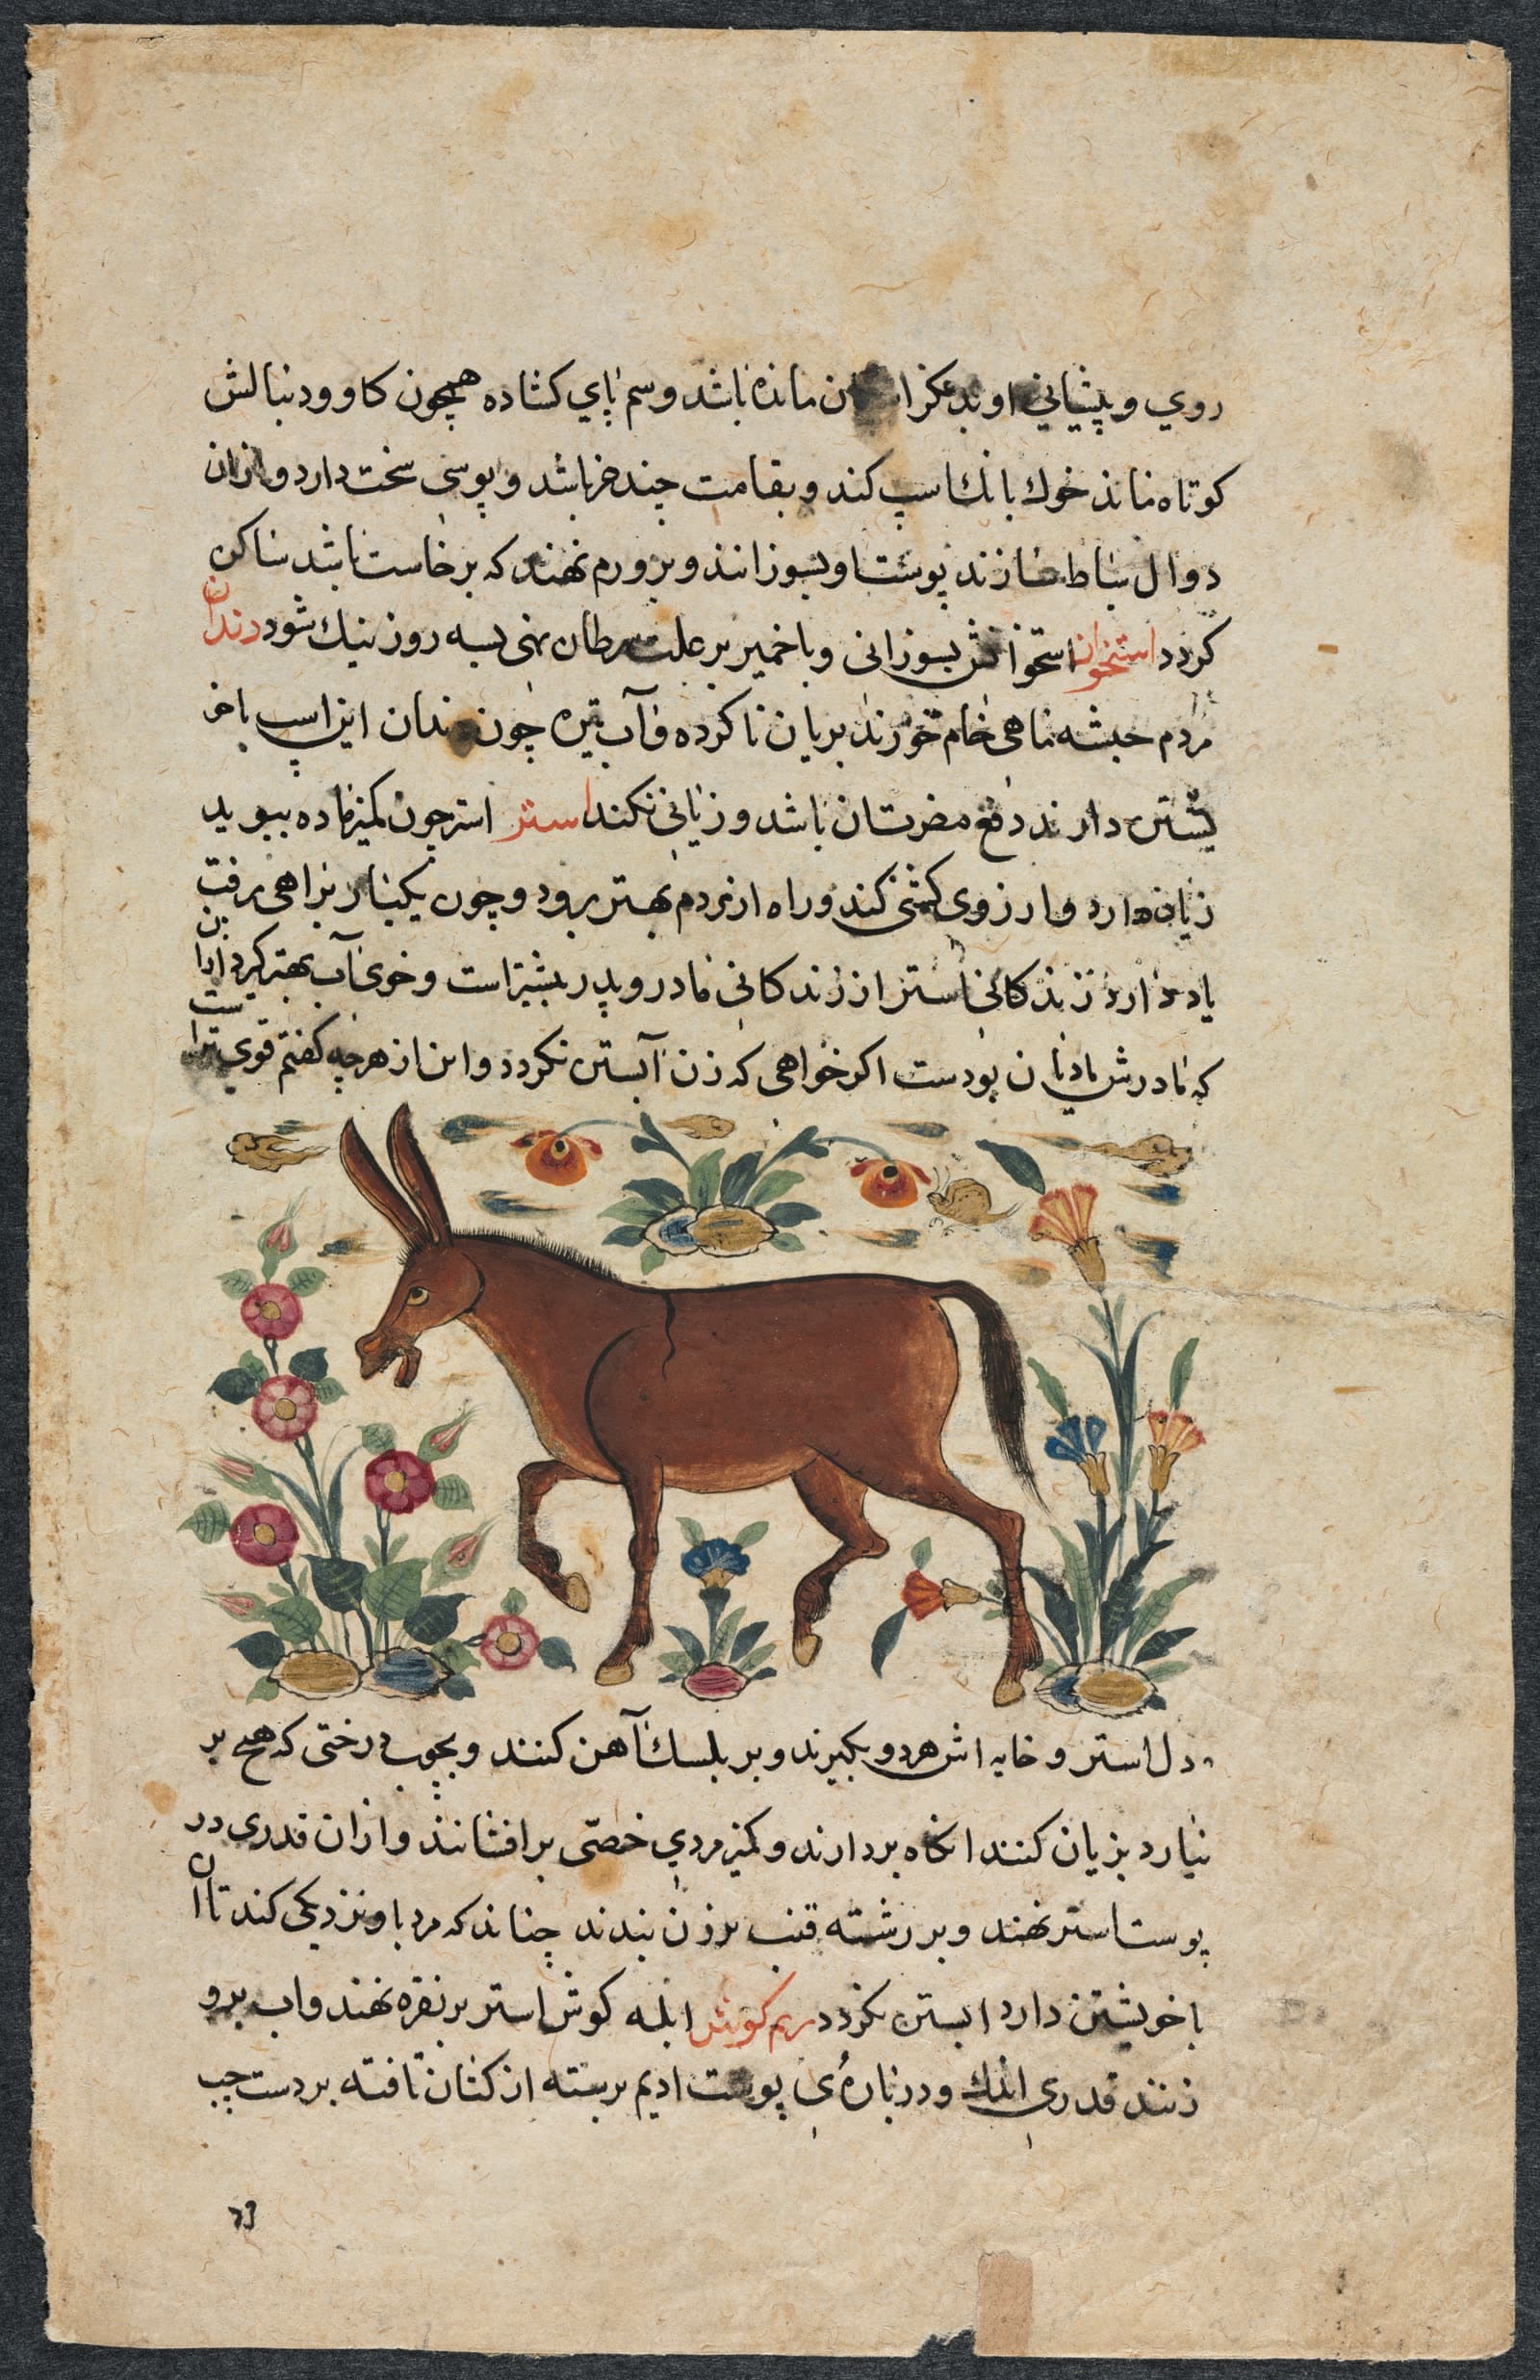 روي و پیشانی او بدیکر اسپان مانده باشد و سم پاي کشاده همچون کاو و دنبالش
کوتاه مانذ خوك بانك اسپ کند و بقامت چند خر باشد و پوستی سخت دارد و ازان
دوال سازند پوست او بسوزانند و بر ورم نهند که برخاست باشد ساکن
کردد استخوان استخوانش بسوزانی و با خمیر بر علت سرطان نهی بسه روز نیك شود دندان
مردم حبشه ماهی خام خورند بریان ناکرده و آب تیره چون دندان این اسپ با خو
یشتن دارند دفع مضرتشان باشد و زیانی نکند استر استر چون کمیز ماده ببوید
زیان دارد و ارزوی کشنی کند و راه از مردم بهتر برود و چون یکبار براهی برفت
یاد دارد زندکانی استر از زندکانی مادر و پدر بیشتر است و خوی آب بهتر کیرد ازا بن
که مادرش مادیان بودست اکر خواهی که زن آبستن نکردد و این از هرچه کفتم قوی ترا ست
دل استر و خایه اش هردو بکیرند و بر بلسك آهن کنند و بچوب درختی که هیچ بر
نیارد بریان کنند انکاه بردارند و کمیز مردي خصّی برافشانند و ازان قدری در
پوست استر نهند و بر رشته قنب بر زن بندند چنانك مرد با او نزدیکی کند تا ان
با خویشتن دارد ابستن نکردد ریم کوش ابله کوش استر بر نقره نهند و اب برو
زنند قدری اندك و در پاره‌ی پوست ادیم بر بسته از کتان تافته بر دست چپ